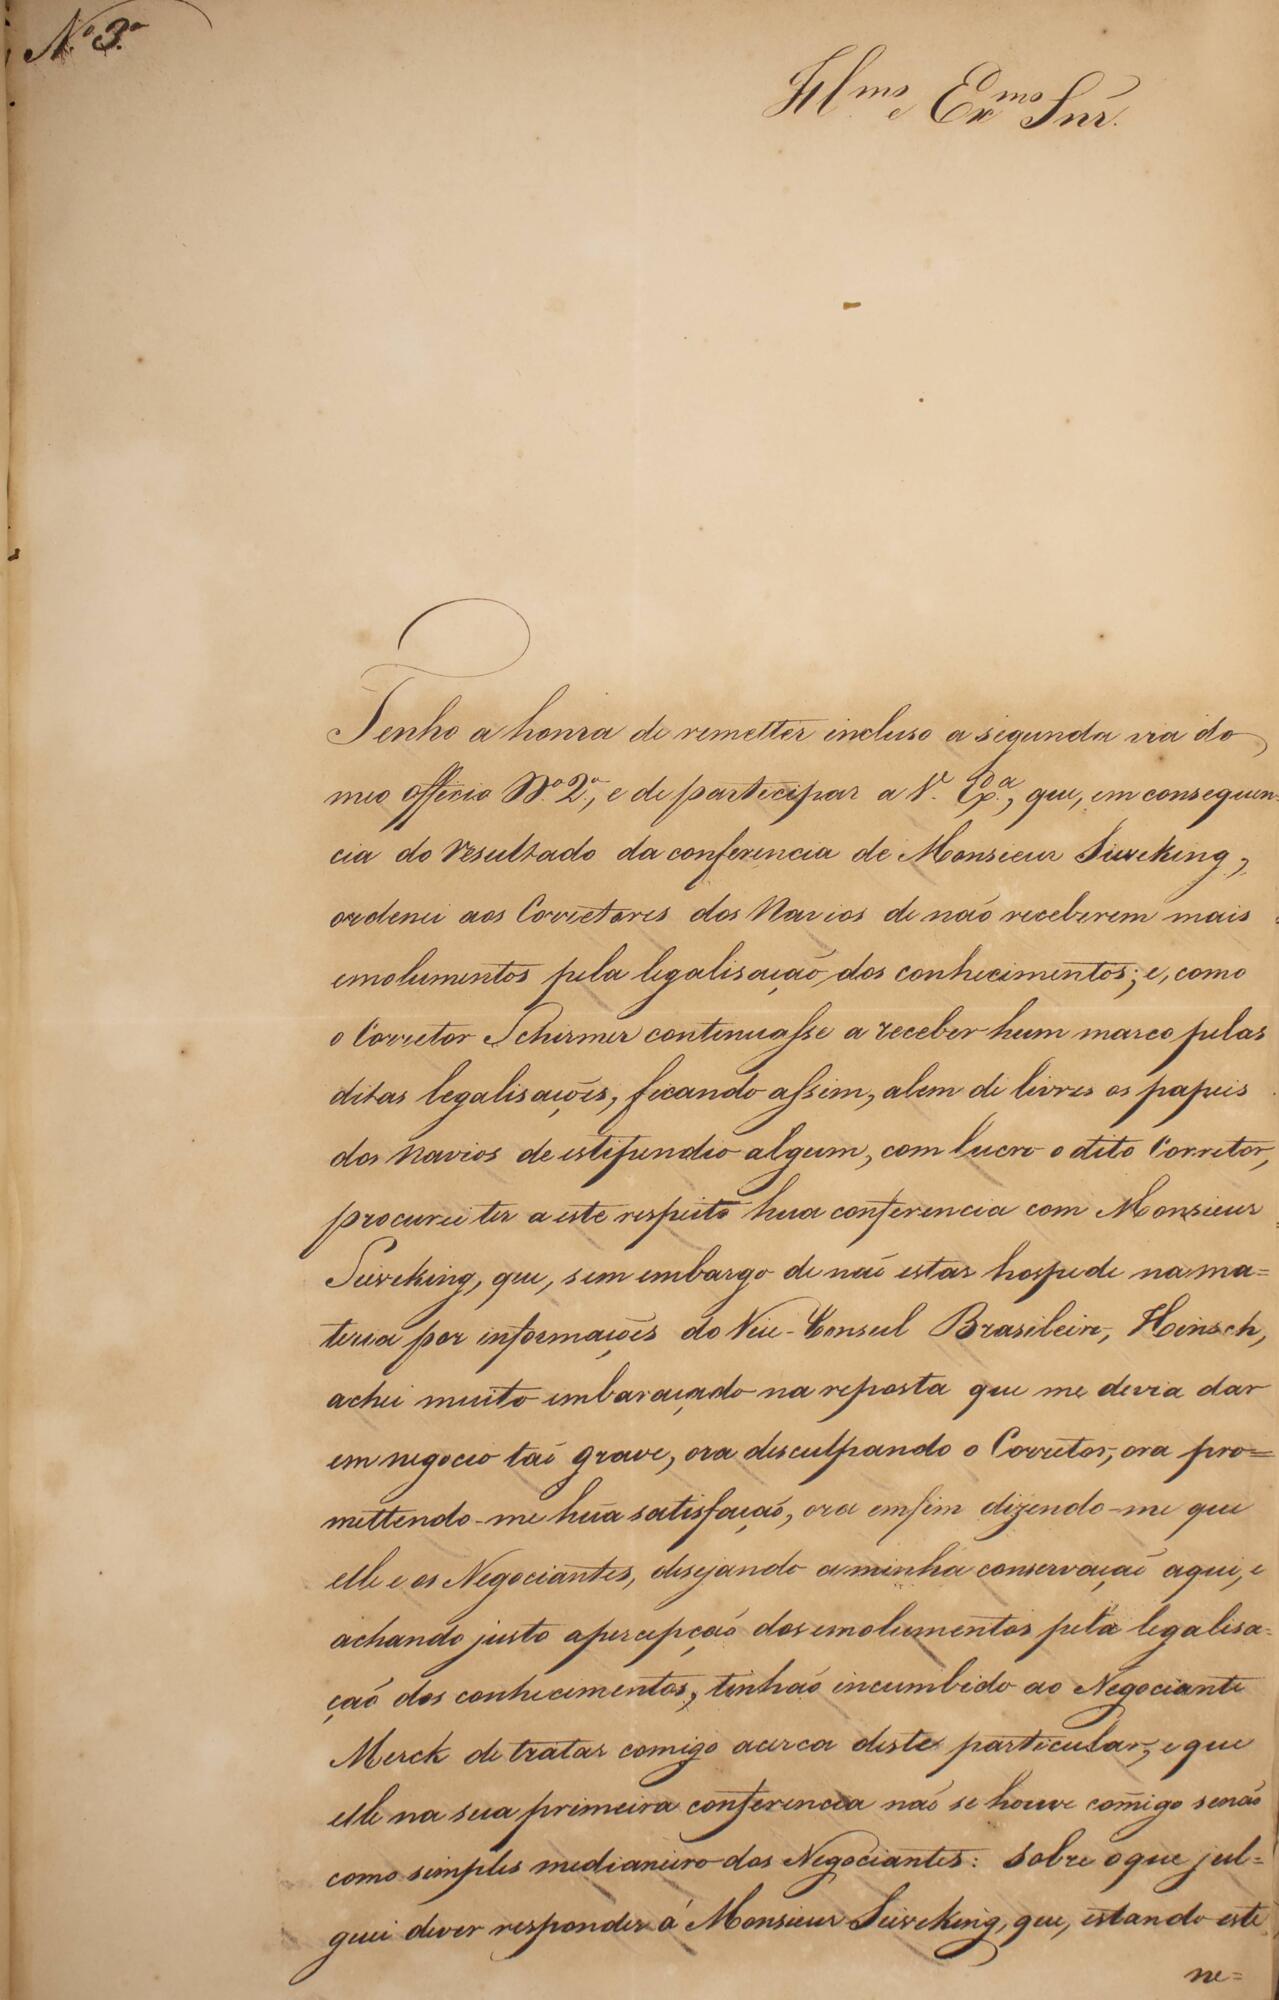 N.º 3.º
Ill.mo e Ex.mo Snr.
Tenho a honra de remetter incluso a segunda via do
meo officio N.º 2.º, e de participar a V. Ex.ª, que, em consequen-
cia do resultado da conferencia de Monsieur Sieveking,
ordenei aos Corretores dos Navios de não receberem mais
emolumentos pela legalisação dos conhecimentos; e, como
o Corretor Schirmer continuasse a receber hum marco pelas
ditas legalisações, ficando assim, alem de livres os papeis
dos Navios de estipendio algum, com lucro o dito Corretor,
procurei ter a este respeito hua conferencia com Monsieur
Sieveking, que, sem embargo de não estar hospede na ma=
teria por informações do Vice-Consul Brasileiro, Hinsch,
achei muito embaraçado na reposta que me devia dar
em negocio taõ grave, ora disculpando o Corretor, ora pro=
mettendo-me hũa satisfação, ora emfim dizendo-me que
elle e os Negociantes, desejando a minha conservação aqui, e
achando justo a percepção dos emolumentos pela legalisa-
ção dos conhecimentos, tinhaõ incumbido ao Negociante
Merck de tratar comigo acerca deste particular, e que
elle na sua primeira conferencia não se houve comigo senão
como simples medianeiro dos Negociantes: sobre o que jul=
guei dever responder á Monsieur Sieveking, que, estando este
ne=